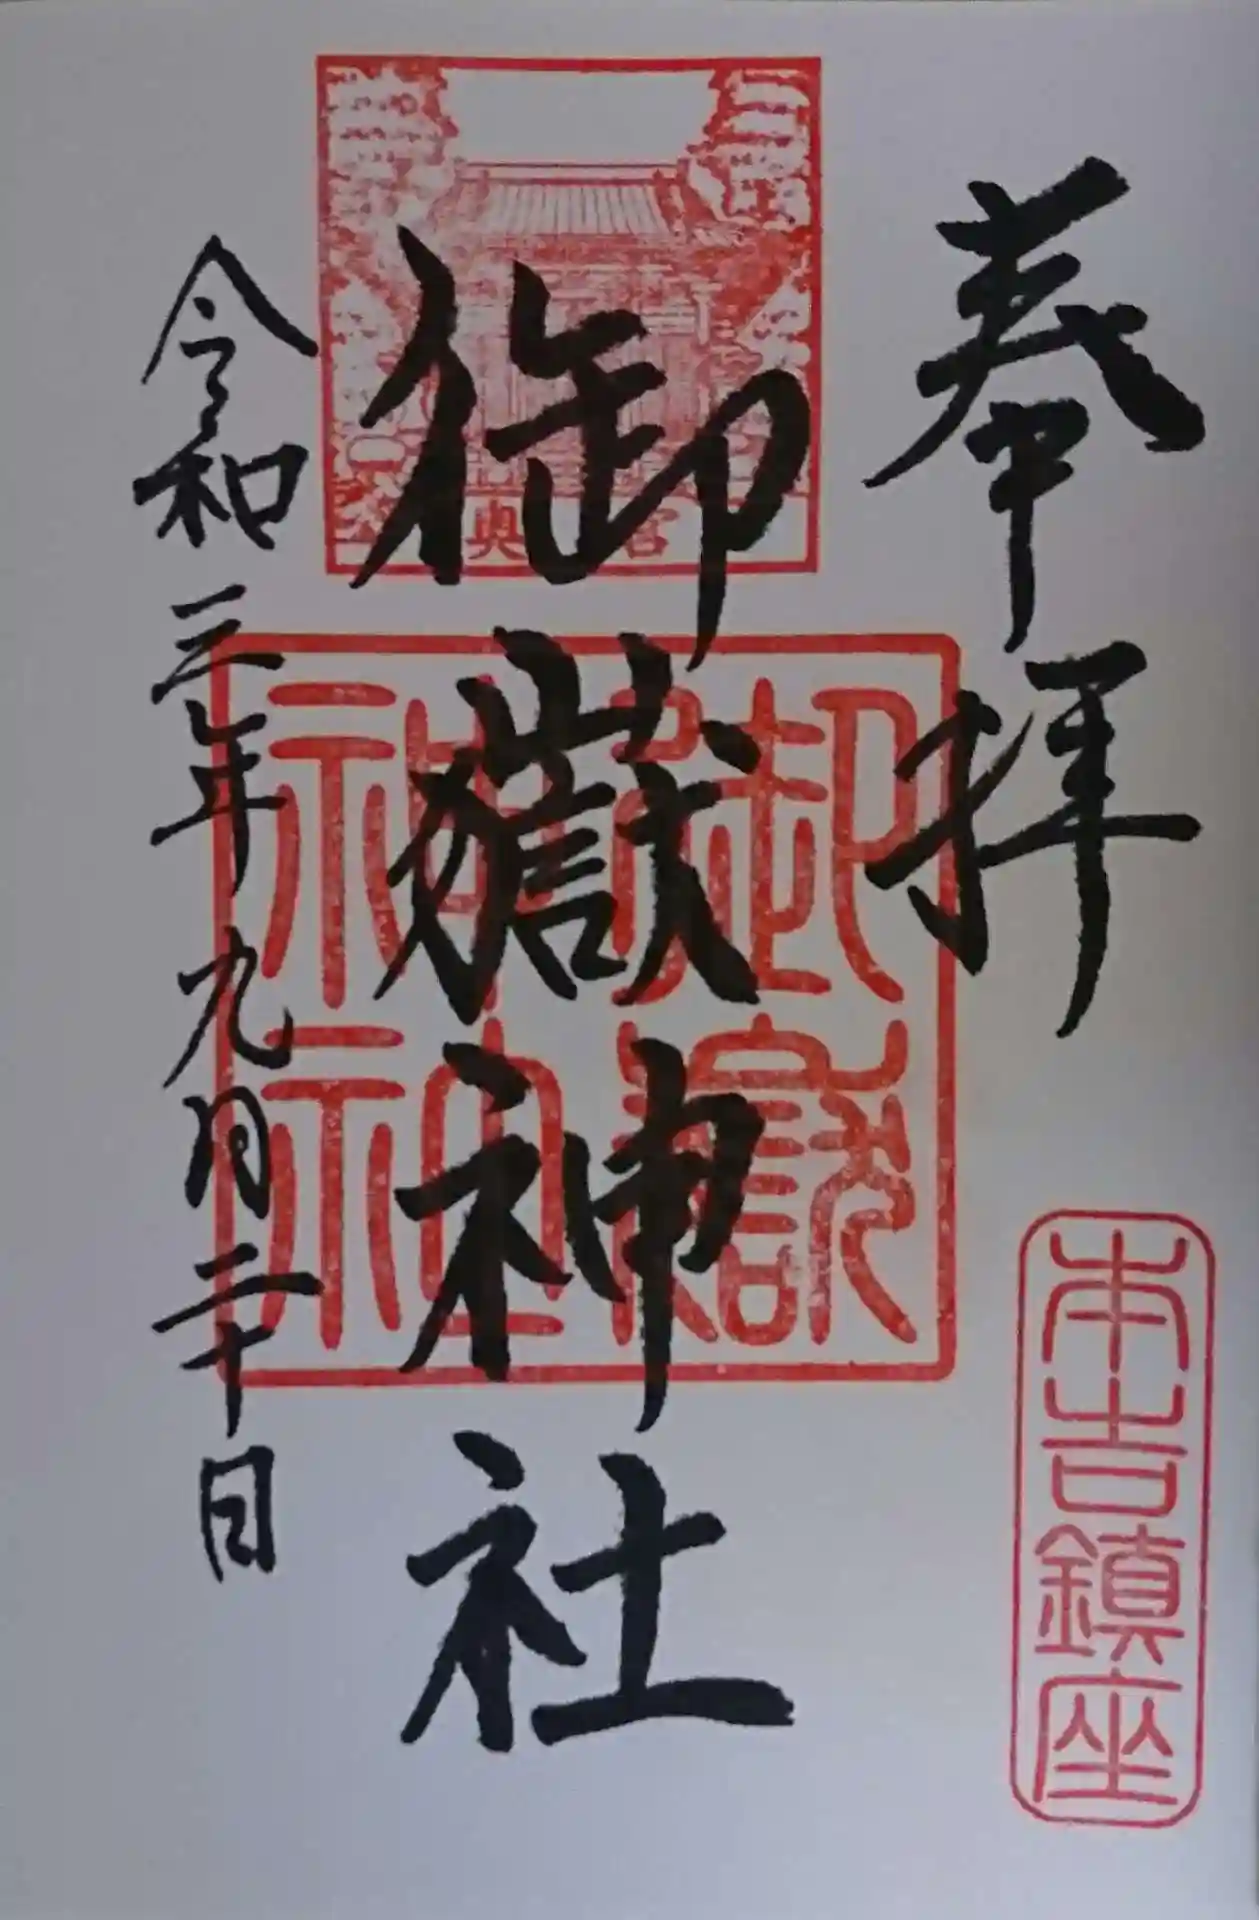 奉拝
本吉鎮座
奥宮
御嶽神社
御嶽神社
令和三年九月二十日